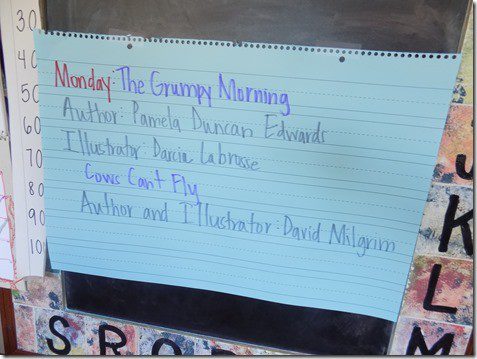 30
40
50
60
70
80
90
10
Monday: The Grumpy Morning
Author: Pamela Duncan Edwards
Illustrator: Darcia Labrosse
Cows Can't Fly
Author and Illustrator: David Milgrim
J
K
L
M
S R O